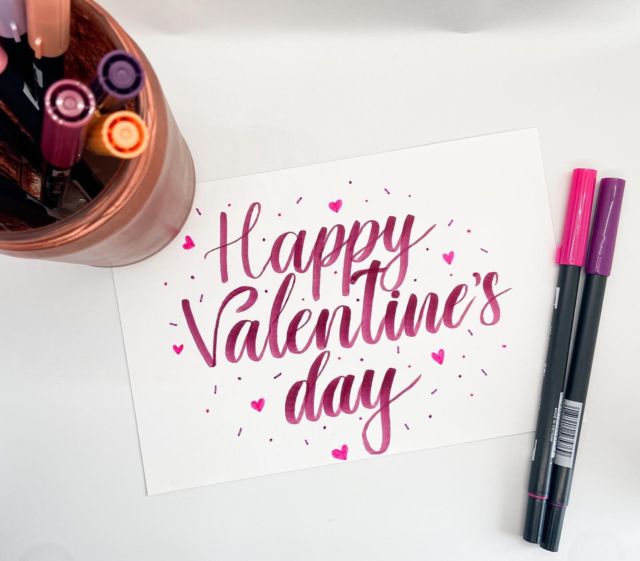 Happy
Valentine's
day